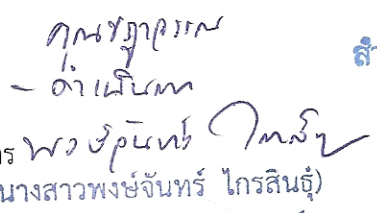 คุณชฎาวรรณ
- ดำเนินการ
พงษ์จันทร์ ไกรสินธุ์
นางสาวพงษ์จันทร์ ไกรสินธุ์)